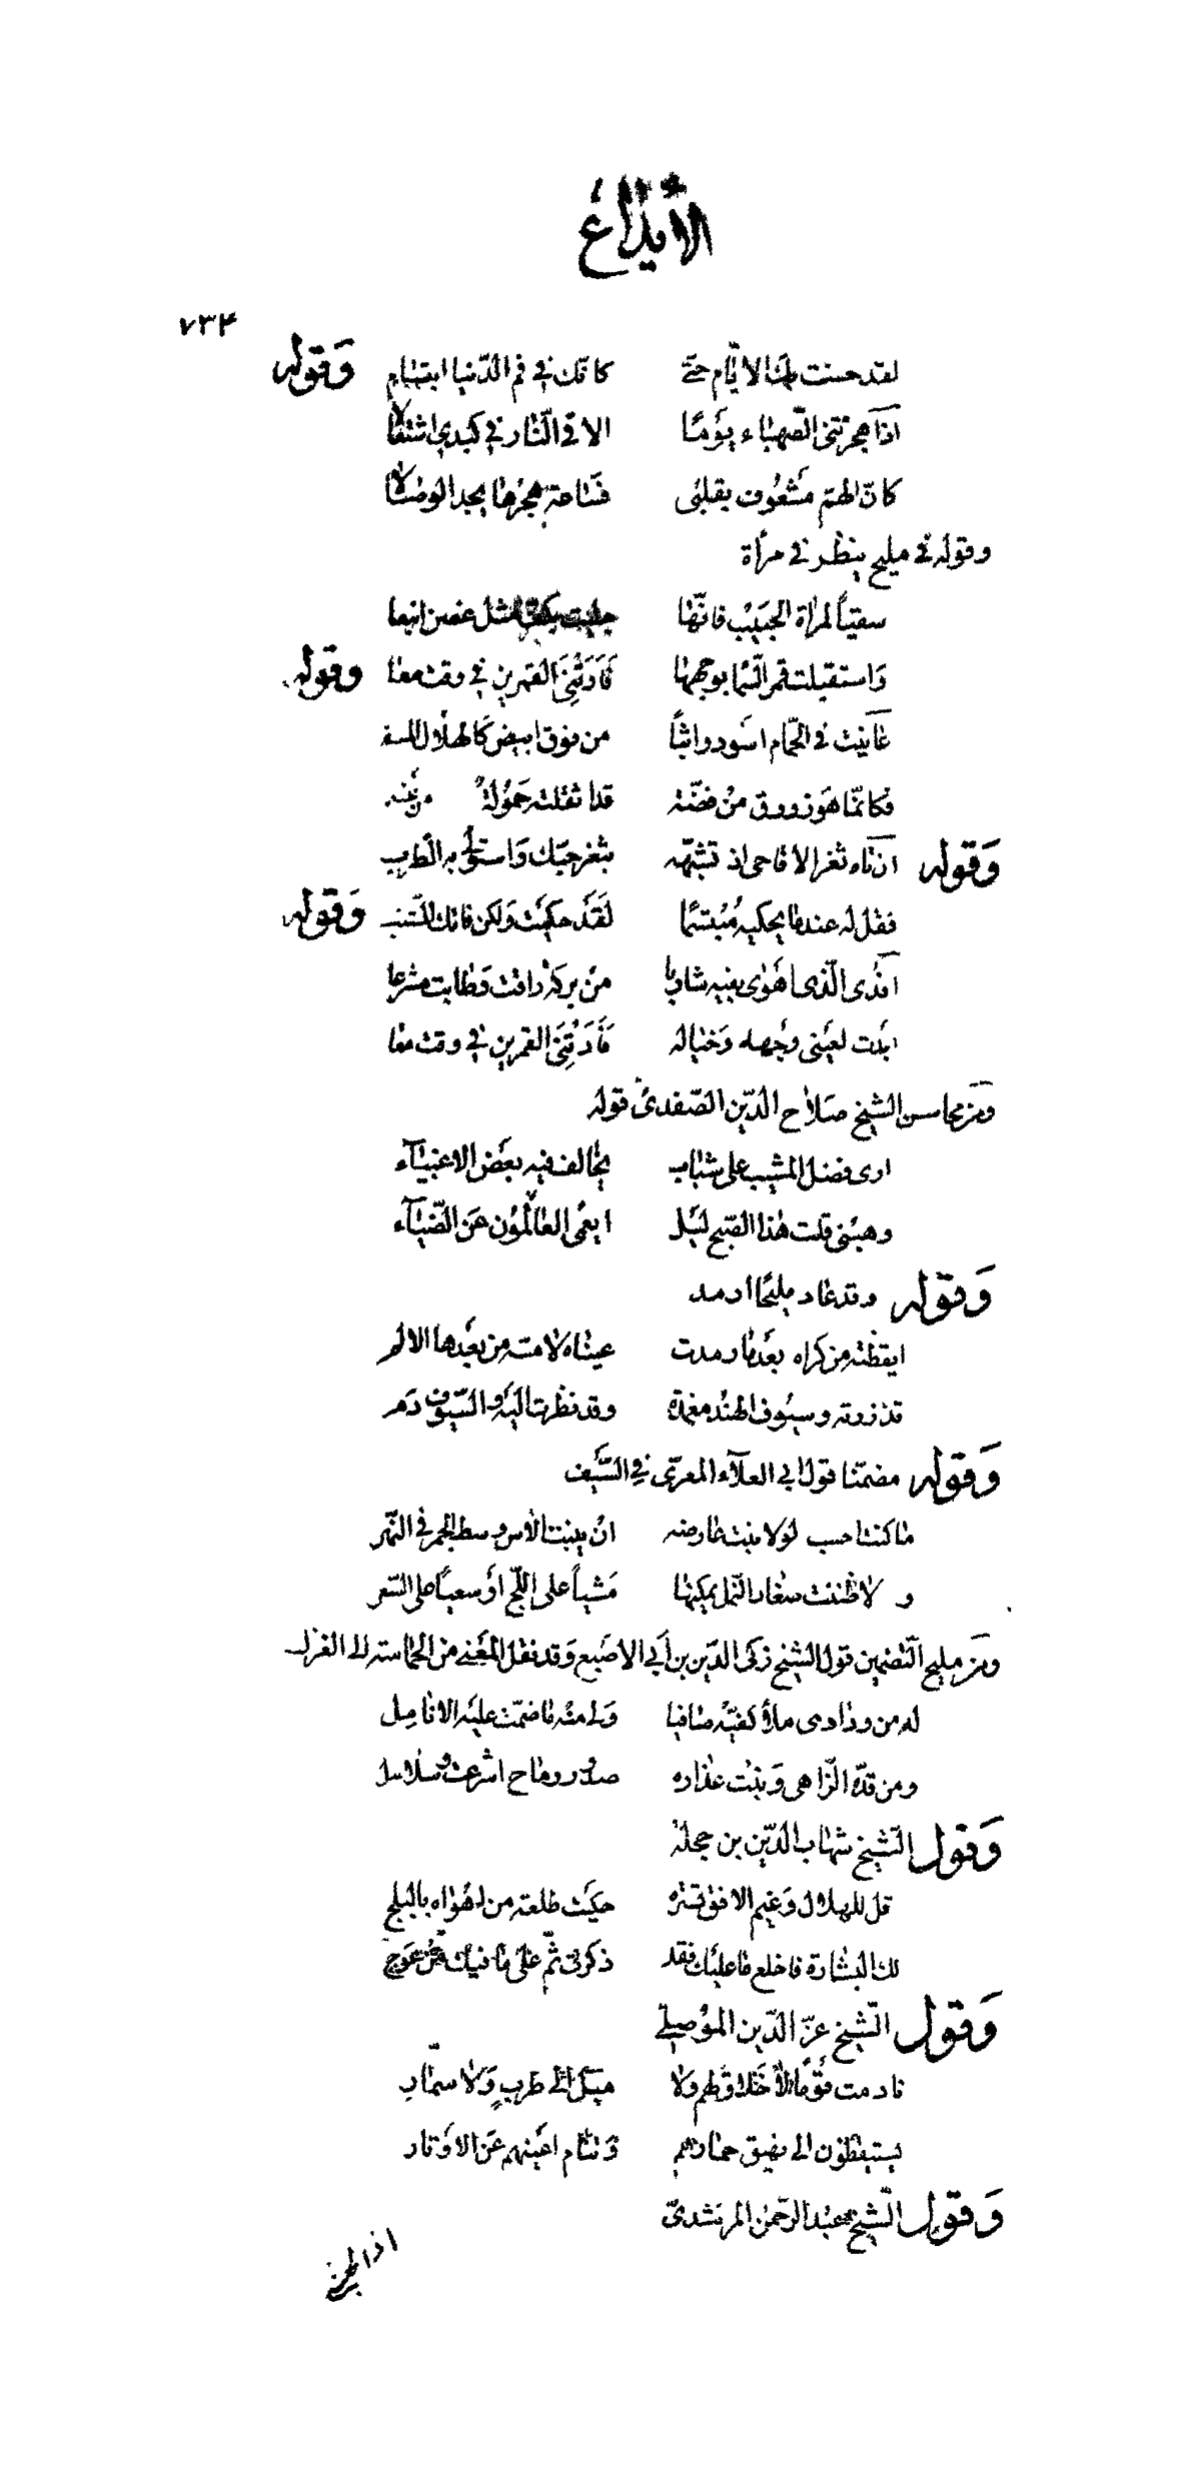 الأيداع
٧٣٤
لقد حسنت بك الايّام حتّى كانّك في فم الدّنيا ابتسام وَقوله
اذا هجرتني الصّهباء يومًا الاقى النّار في كبدي اشتعالا
كانّ الهمّ مشغوف بقلبى فساعة هجرها يجد الوصالا
وقوله في مليح ينظر في مرأة
سقياً لمرأة الحبيب فانّها جليت مثل غصن اينعا
وَاستقبلت قمر السّما بوجهها فَأَرَتْنِيَ القمرين في وقت معا وقوله
عاينت في الحمّام اسود واثباً من فوق ابيض كالهلال المسفر
فكانّما هو زورق من فضّة قد اثقلته حمولة من عنبر
وَقوله ان تاه ثغر الاقاحى اذ تشبّهه بثغر حبّك وَاستولى به الطّرب
فقل له عندما يحكيه مُبتسمًا لَقَد حكيت وَلكن فاتك الشّنب وَقوله
افدى الّذى اهوى بفيه شاربا من بركة راقت وَطابت مشرعا
ابدت لعينى وجهه وَخياله فَأَرَتْنِيَ القمرين في وقت معا
ومن محاسن الشيخ صلاح الدّين الصّفدىّ قوله
ارى فضل المشيب على شباب يخالف فيه بعض الاغبيآء
وهبنى قلت هذا الصّبح ليل ايعمى العالمون عن الضّيآء
وَقوله وقد عاد مليحًا ارمد
ايقظته من كراه بعد ما رمدت عيناه لا مسّه من بعدها الالم
قد زرته وسيوف الهند مغمدة وقد نظرت اليه والسّيوف دم
وَقوله مضمّنا قول ابي العلآء المعرّى في السّيف
ما كنت احسب لولا نبت عارضه ان ينبت الآس وسط الجمر في النّهر
ولا ظننت صغار النّمل يمكنها مَشياً على اللّجّ او سعياً على السّعر
ومن مليح التّضمين قول الشيخ زكى الدّين بن أبي الاصبع وَقد نقل المعنى من الحماسة الى الغزل
له من ودادى ملأ كفّيه صافيا وَلى منه ما ضمّت عليه الانامل
ومن قدّه الزّاهى وَنبت عذاره صدور رماح اشرعت وسلاسل
وَقول الشّيخ شهاب الدّين بن حجلة
قل للهلال وَغيم الافق تستره حكيت طلعة من اهواه بالبلج
لك البشارة فاخلع ما عليك فقد ذكرت ثمّ على ما فيك من عوج
وَقول الشّيخ عزّ الدّين الموصلي
نادمت قومًا لا خلاق لهم ولا ميل الى طرب وَلا سمّار
يستيقظون الى نهيق حمارهم وَتنام اعينهم عن الاوتار
وَقول الشّيخ عبد الرّحمن المرشدىّ